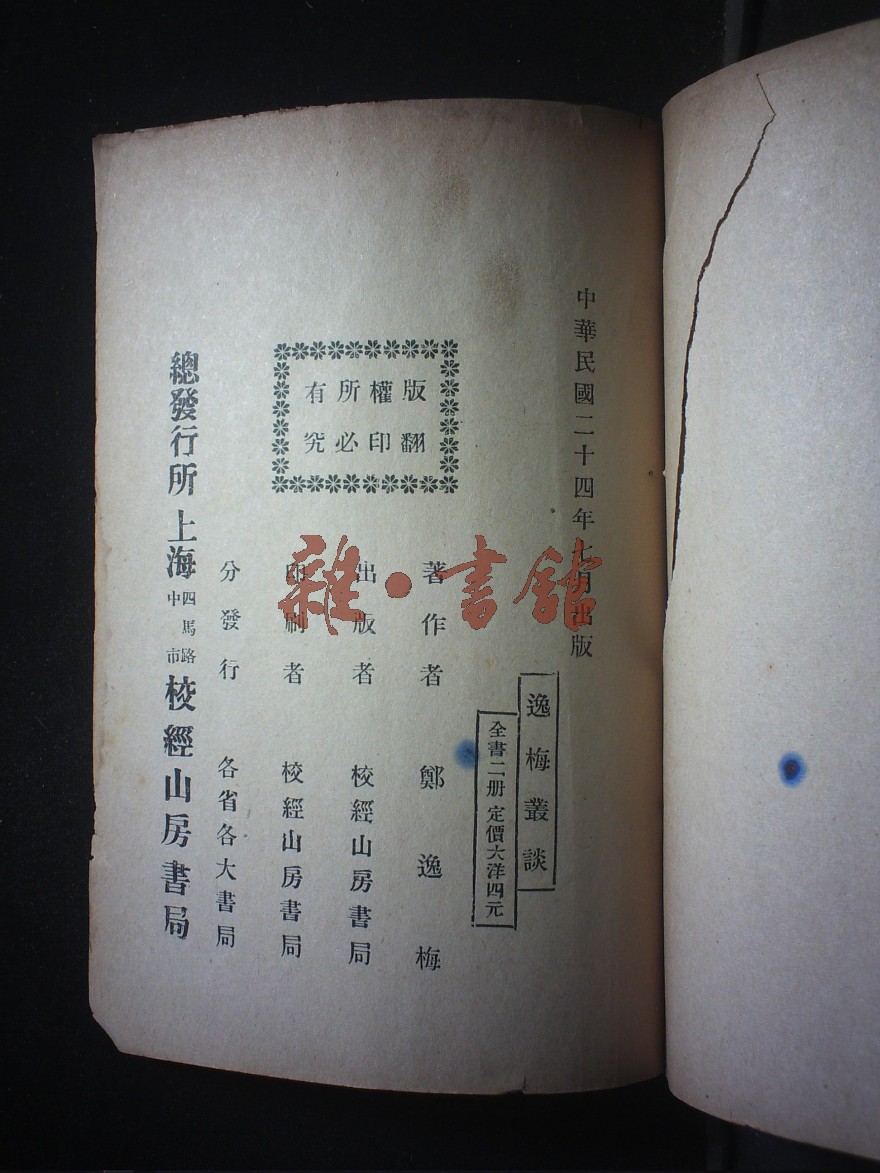 中華民國二十四年七月出版
逸梅叢談
全書二册 定價六洋四元
版權所有
翻印必究
著作者 鄭逸梅
出版者 校經山房書局
印刷者 校經山房書局
分發行 各省各大書局
總發行所 上海 四馬路中市 校經山房書局
雜·書館